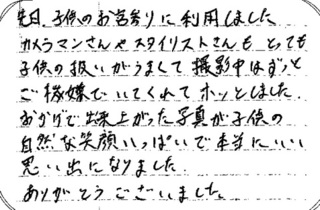 先日、子供のお宮参りに利用しました
カメラマンさんやスタイリストさんも とっても
子供の扱いがうまくて 撮影中はずっと
ご機嫌でいてくれて ホッとしました.
おかげで出来上がった写真が子供の
自然な笑顔いっぱいで本当にいい
思い出になりました.
ありがとうございました.